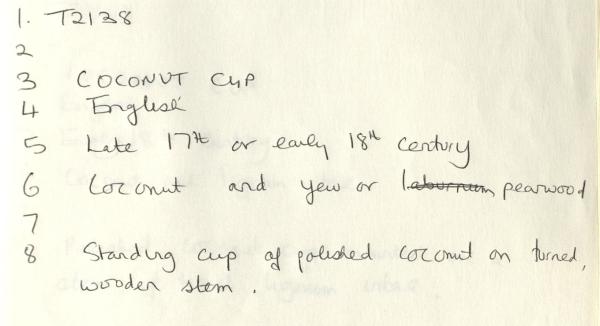 1. T2138
2
3 COCONUT CUP
4 English
5 Late 17th or early 18th century
6 Coconut and yew or laburnum pearwood
7
8 Standing cup of polished coconut on turned,
wooden stem.